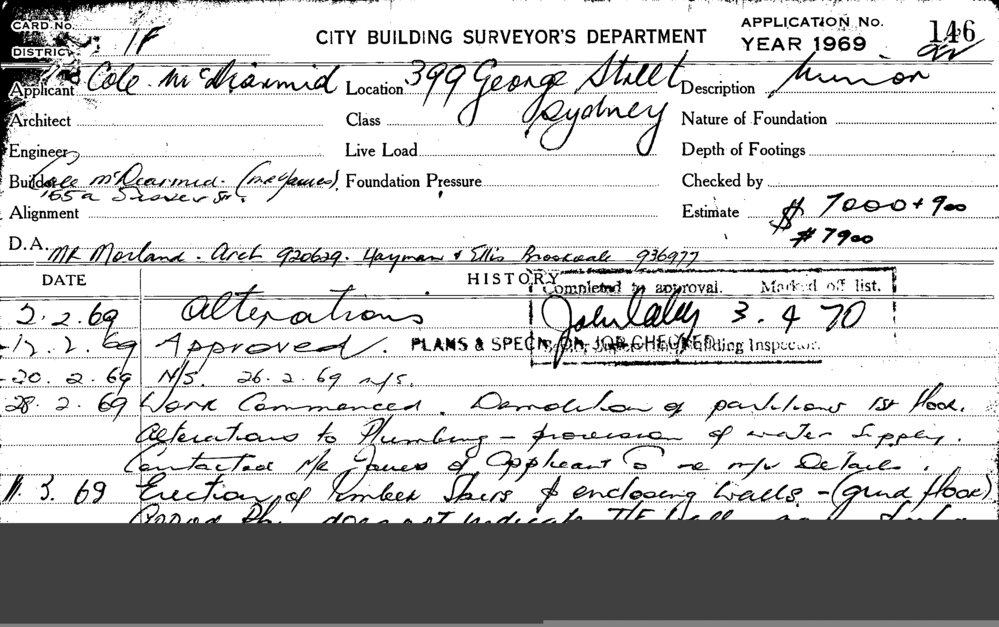 CARD No. APPLICATION No. 146
DISTRICT 1F CITY BUILDING SURVEYOR'S DEPARTMENT YEAR 1969
Applicant Cole McDiarmid Location 399 George Street Description Minor
Architect Class Sydney Nature of Foundation
Engineer Live Load Depth of Footings
Builder Cole McDearmid. Foundation Pressure Checked by
Alignment Estimate $ 7000 + 900
$ 7900
D.A. Mr Morland. Arch 920629. Hayman & Ellis Brookvale 936977
DATE HISTORY
Completed to approval. Marked off list.
2.2.69 Alterations 3. 4 70
12.2.69 Approved. PLANS & SPECN. ON JOB CHECKED Building Inspector.
20.2.69 N/S. 26.2.69 n/s.
28.2.69 Work Commenced. Demolition of partitions 1st floor.
Alterations to Plumbing - provision of water supply.
Contacted Mr James of Applicant Co re Details.
11.3.69 Erection of timber stairs & enclosing walls - (grnd floor)
does not indicate